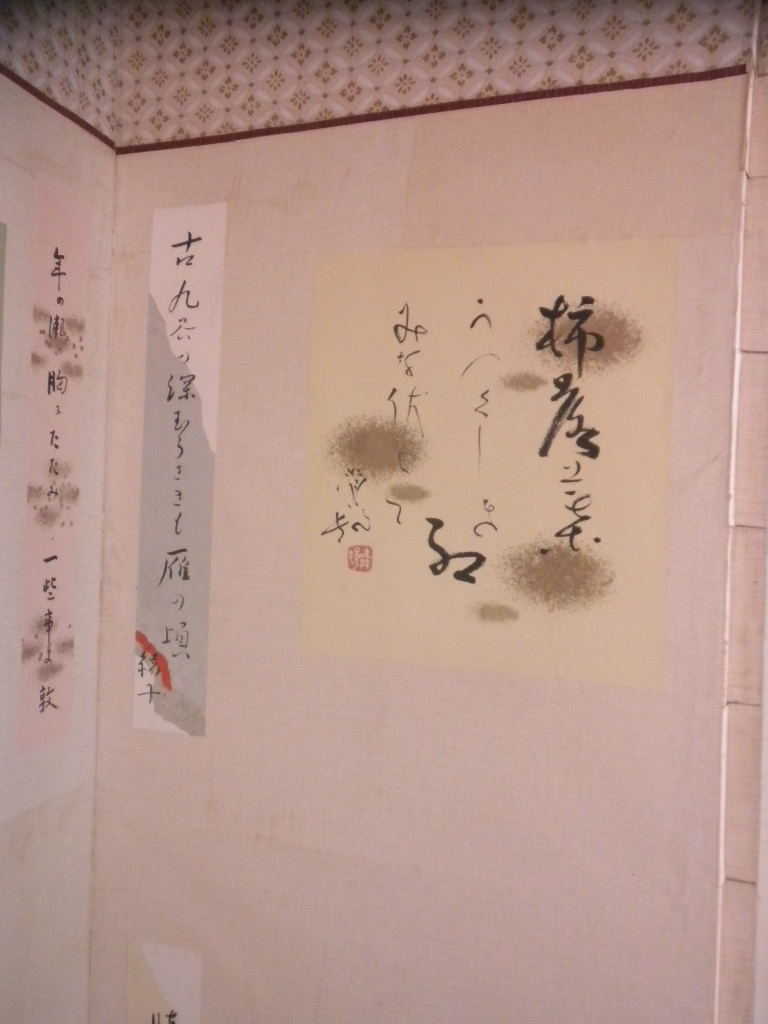 柿落葉
うつくしき
紅
みな伏して
古九谷の深むらさきも雁の頃
綾子
年の瀬 胸にたたみ 一些事は 敦